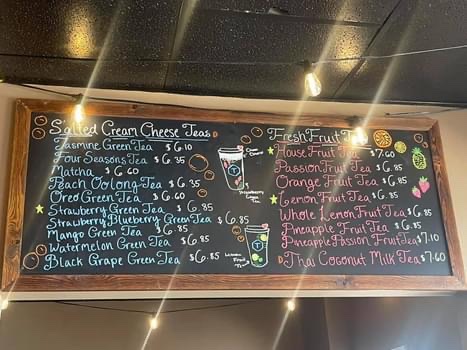 Salted Cream Cheese Teas
Jasmine Green Tea $6.10
Four Seasons Tea $6.35
Matcha $6.60
Peach Oolong Tea $6.35
Oreo Green Tea $6.60
Strawberry Green Tea $6.85
Strawberry Blueberry Green Tea $6.85
Mango Green Tea $6.85
Watermelon Green Tea $6.85
Black Grape Green Tea $6.85
Cream Cheese
T
Strawberry Green Tea
T
Lemon Fruit Tea
Fresh Fruit Tea
House Fruit Tea $7.60
Passion Fruit Tea $6.85
Orange Fruit Tea $6.85
Lemon Fruit Tea $6.85
Whole Lemon Fruit Tea $6.85
Pineapple Fruit Tea $6.85
Pineapple Passion Fruit Tea $7.10
Thai Coconut Milk Tea $7.60